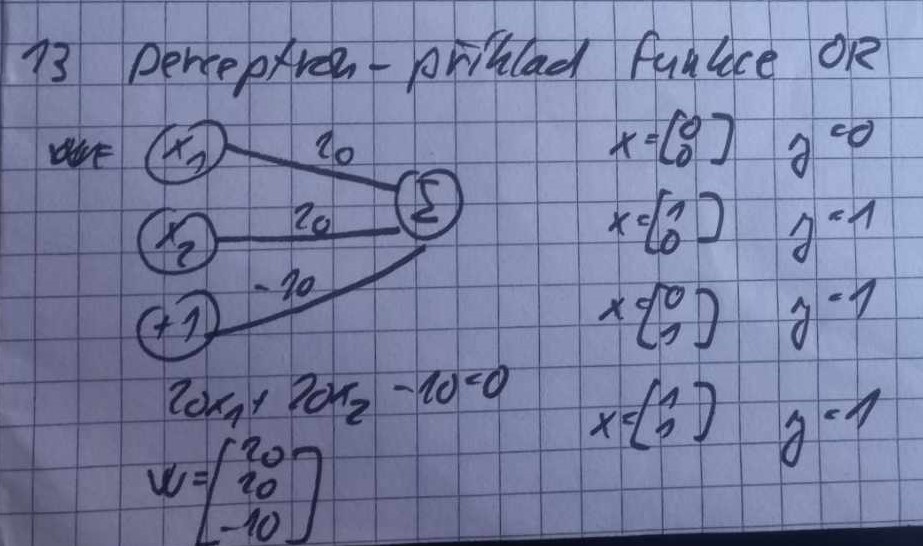 13 Perceptron - příklad funkce OR
x1 20 Σ
x2 20
+1 -10
20x1 + 20x2 - 10 = 0
w = [20 20 -10]
x = [0 0] y = 0
x = [1 0] y = 1
x = [0 1] y = 1
x = [1 1] y = 1